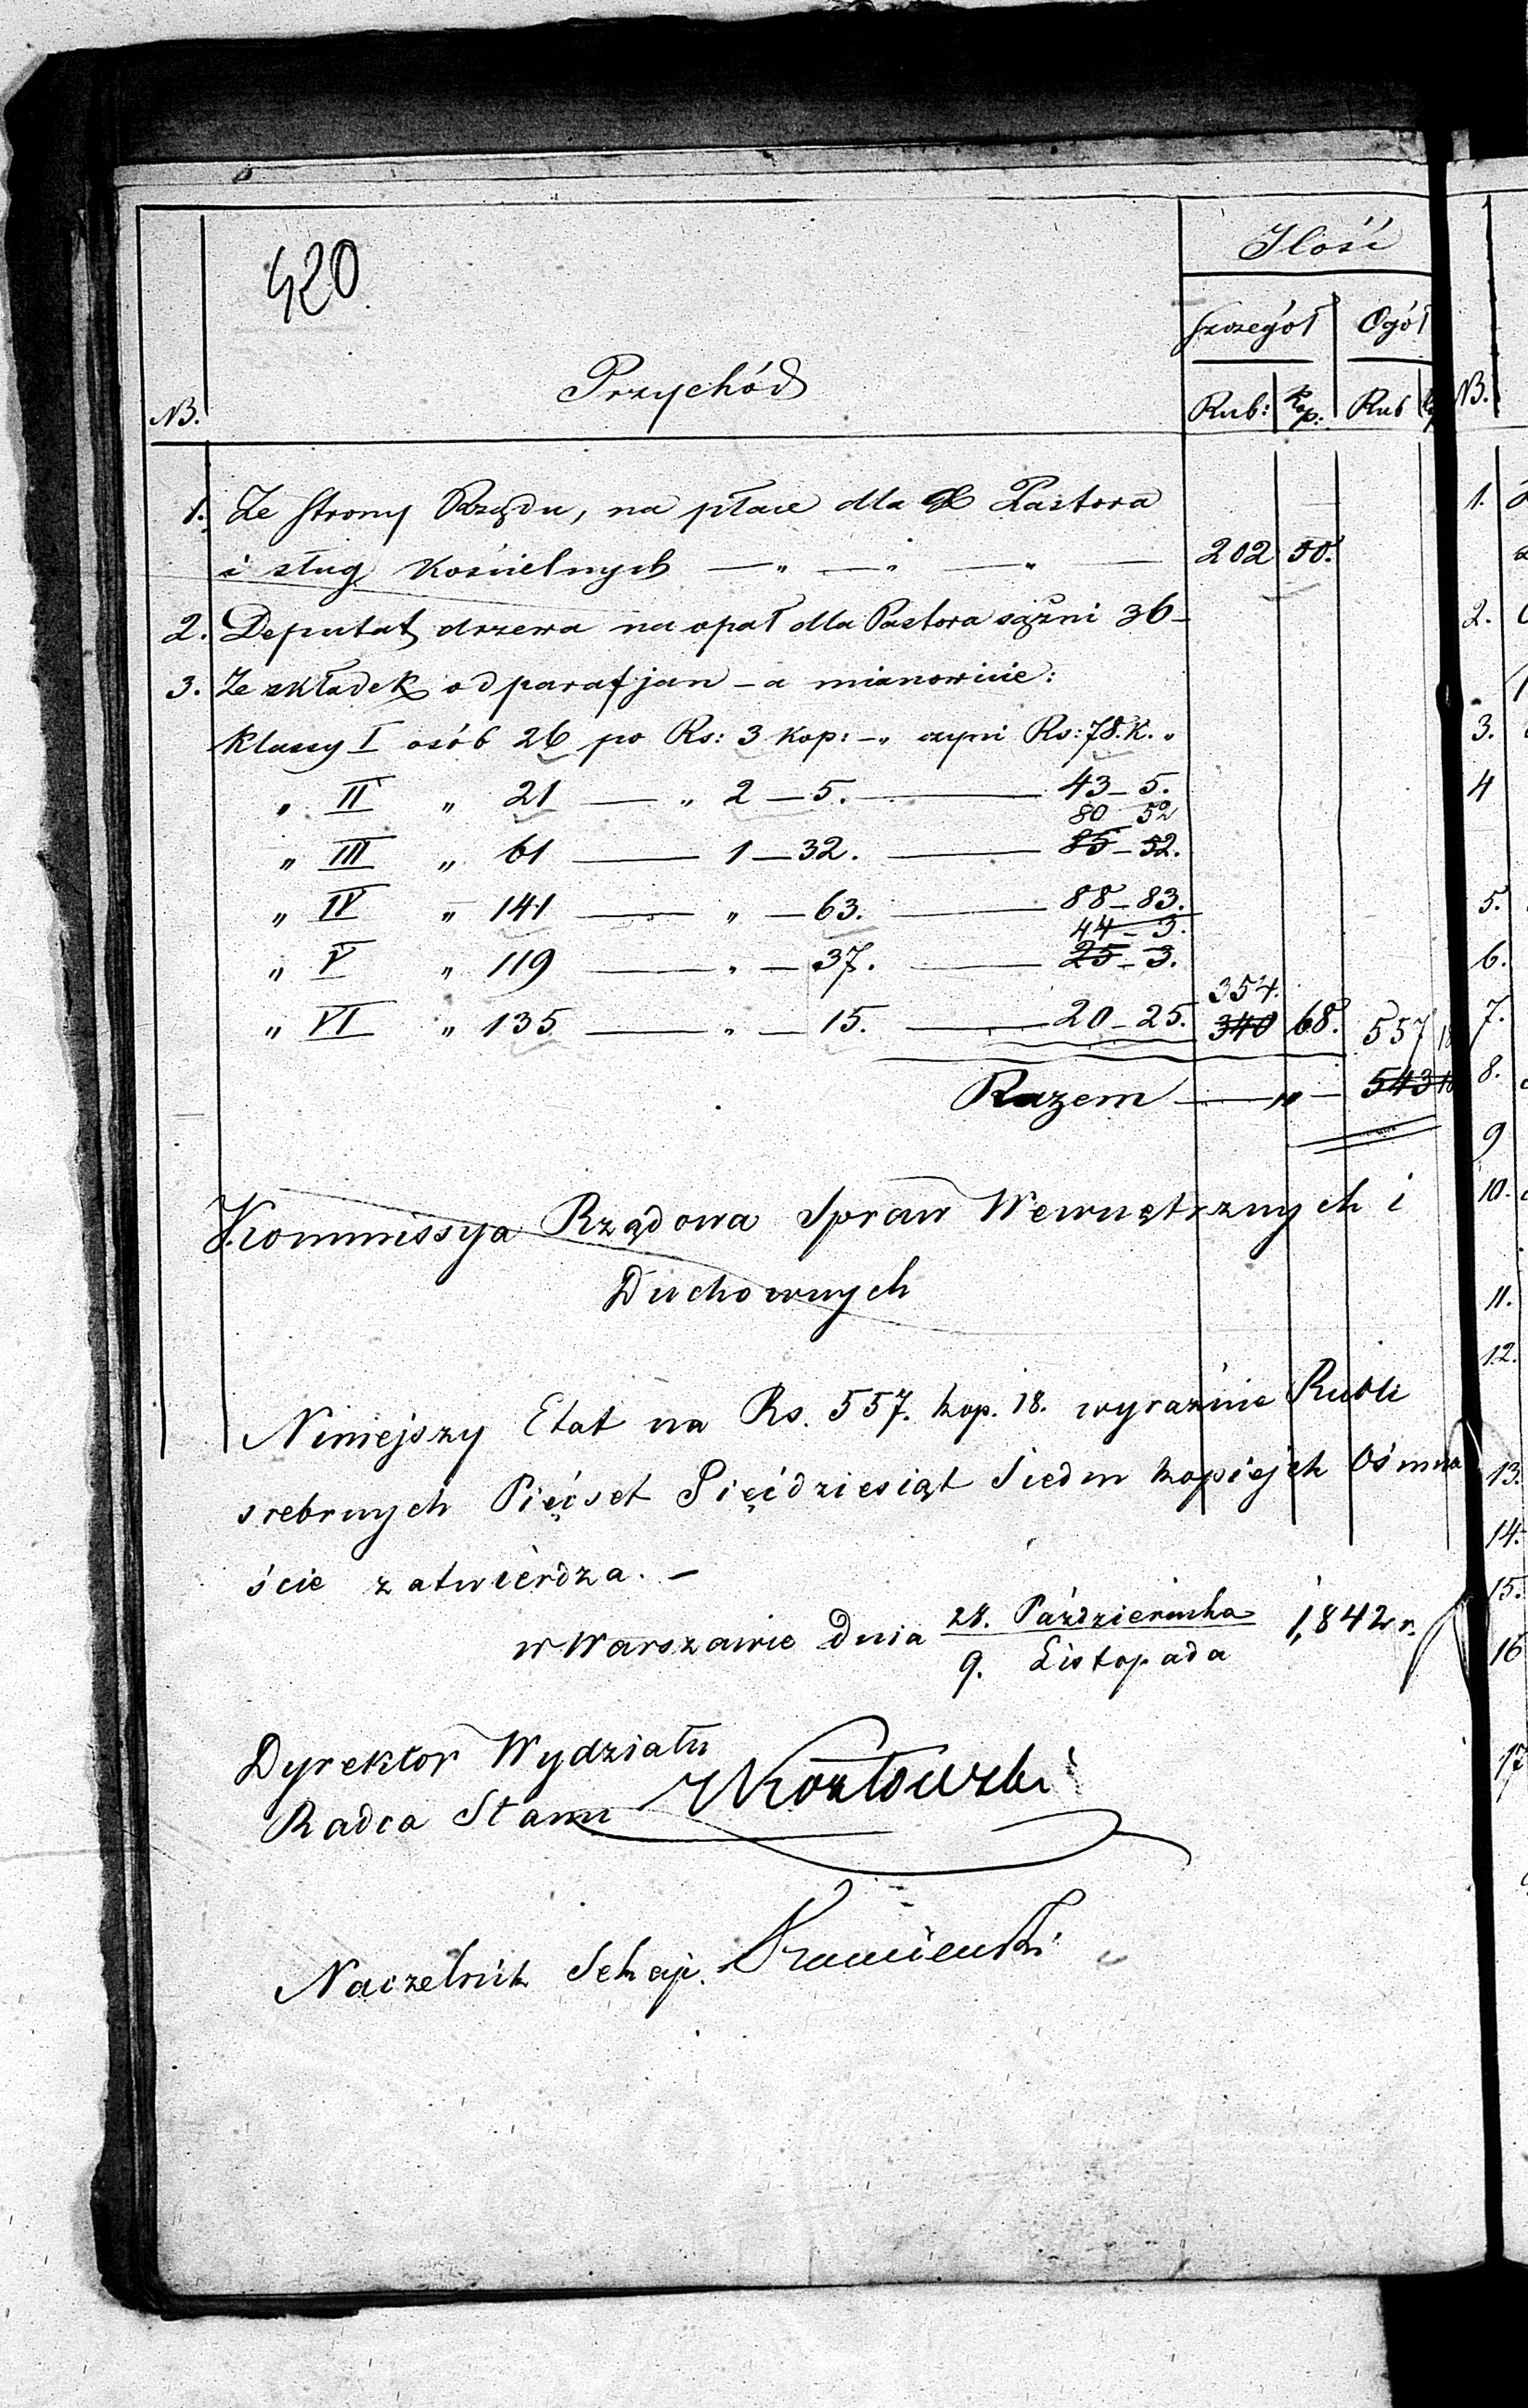 420
Ilość
Szczegół Ogół
NB. Przychód Rub: Kop: Rub
1. Ze Strony Rządu, na płace dla Pastora
i sług Kościelnych — „ — „ — „ — 202 50.
2. Deputat drzewa na opał dla Pastora sążni 36 —
3. Ze składek od parafjan — a mianowicie:
Klassy I osób 26 po Rs: 3 kop: — „ czyni Rs: 78. K. „
„ II „ 21 — „ 2 — 5. — 43 — 5.
80 52
„ III „ 61 — 1 — 32. — 85 — 52.
„ IV „ 141 — „ — 63. — 88 — 83.
44 — 3.
„ V „ 119 — „ — 37. — 25 — 3.
354.
„ VI „ 135 — „ — 15. — 20 — 25. 340 68. 557 18
Razem — „ — 543 18
Kommissya Rządowa Spraw Wewnętrznych i
Duchownych
Niniejszy Etat na Rs. 557. kop. 18. wyraźnie Rubli
srebrnych Pięćset Pięćdziesiąt Siedm kopiejek Ośmna
ście zatwierdza. —
w Warszawie dnia 28. Października 1842 r.
9. Listopada
Dyrektor Wydziału
Radca Stanu Kozłowski
Naczelnik Sekcji.
NB.
1.
2.
3.
4
5.
6.
7.
8.
9
10.
11.
12.
13.
14.
15.
16
17